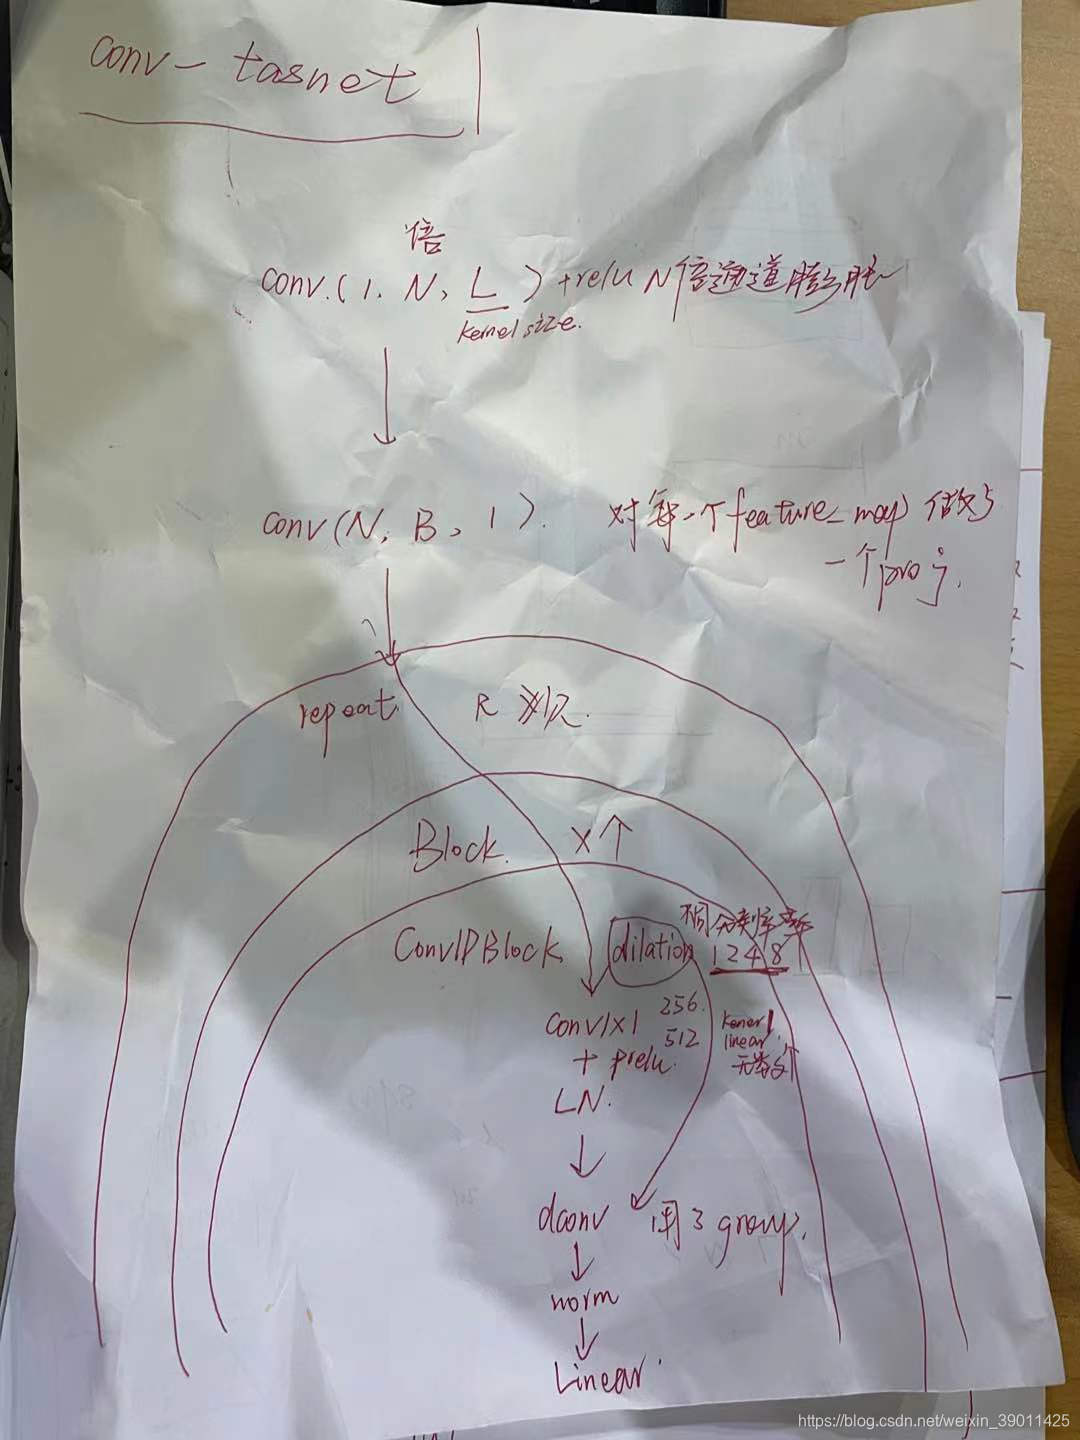 conv-tasnet
倍
conv.(1, N, L) + relu N倍通道膨胀
kernel size.
conv(N, B, 1). 对每一个feature_map 做了
一个proj.
repeat. R 次.
Block. X个
不同分辨率
Conv1DBlock dilation 1248
conv1x1 256.
512
+ prelu.
kernel
linear.
LN.
dconv 用了group.
norm
Linear.
https://blog.csdn.net/weixin_39011425